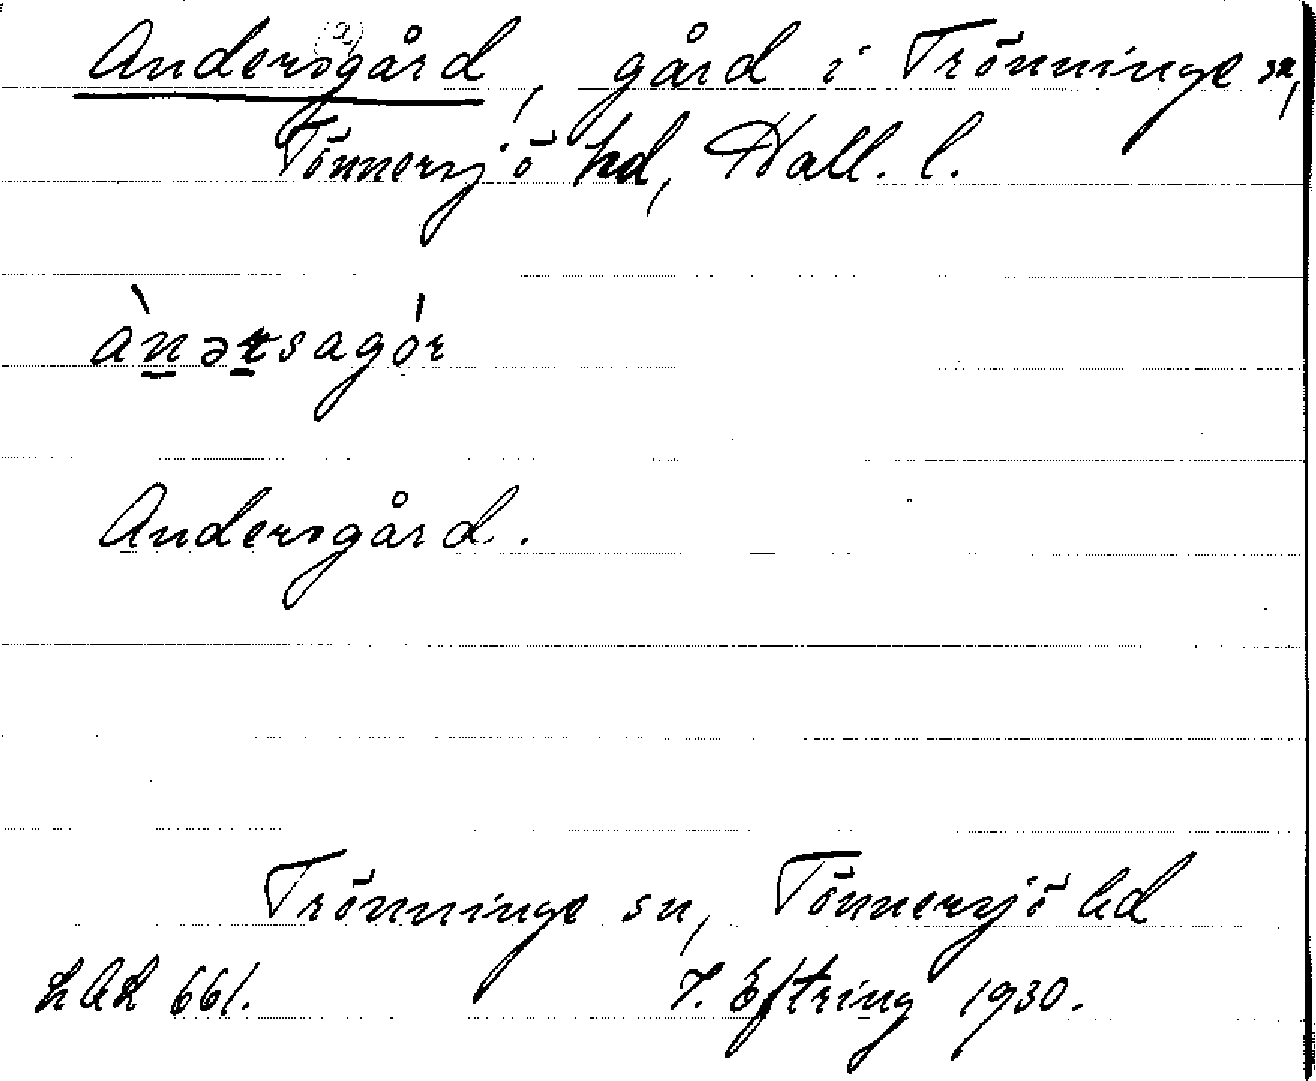 Anders(a)gård, gård i Trönninge sn,
Tönnersjö hd, Hall. l.
ànərsagór
Andersgård.
Trönninge sn, Tönnersjö hd
LAL 661. J. Eftring 1930.